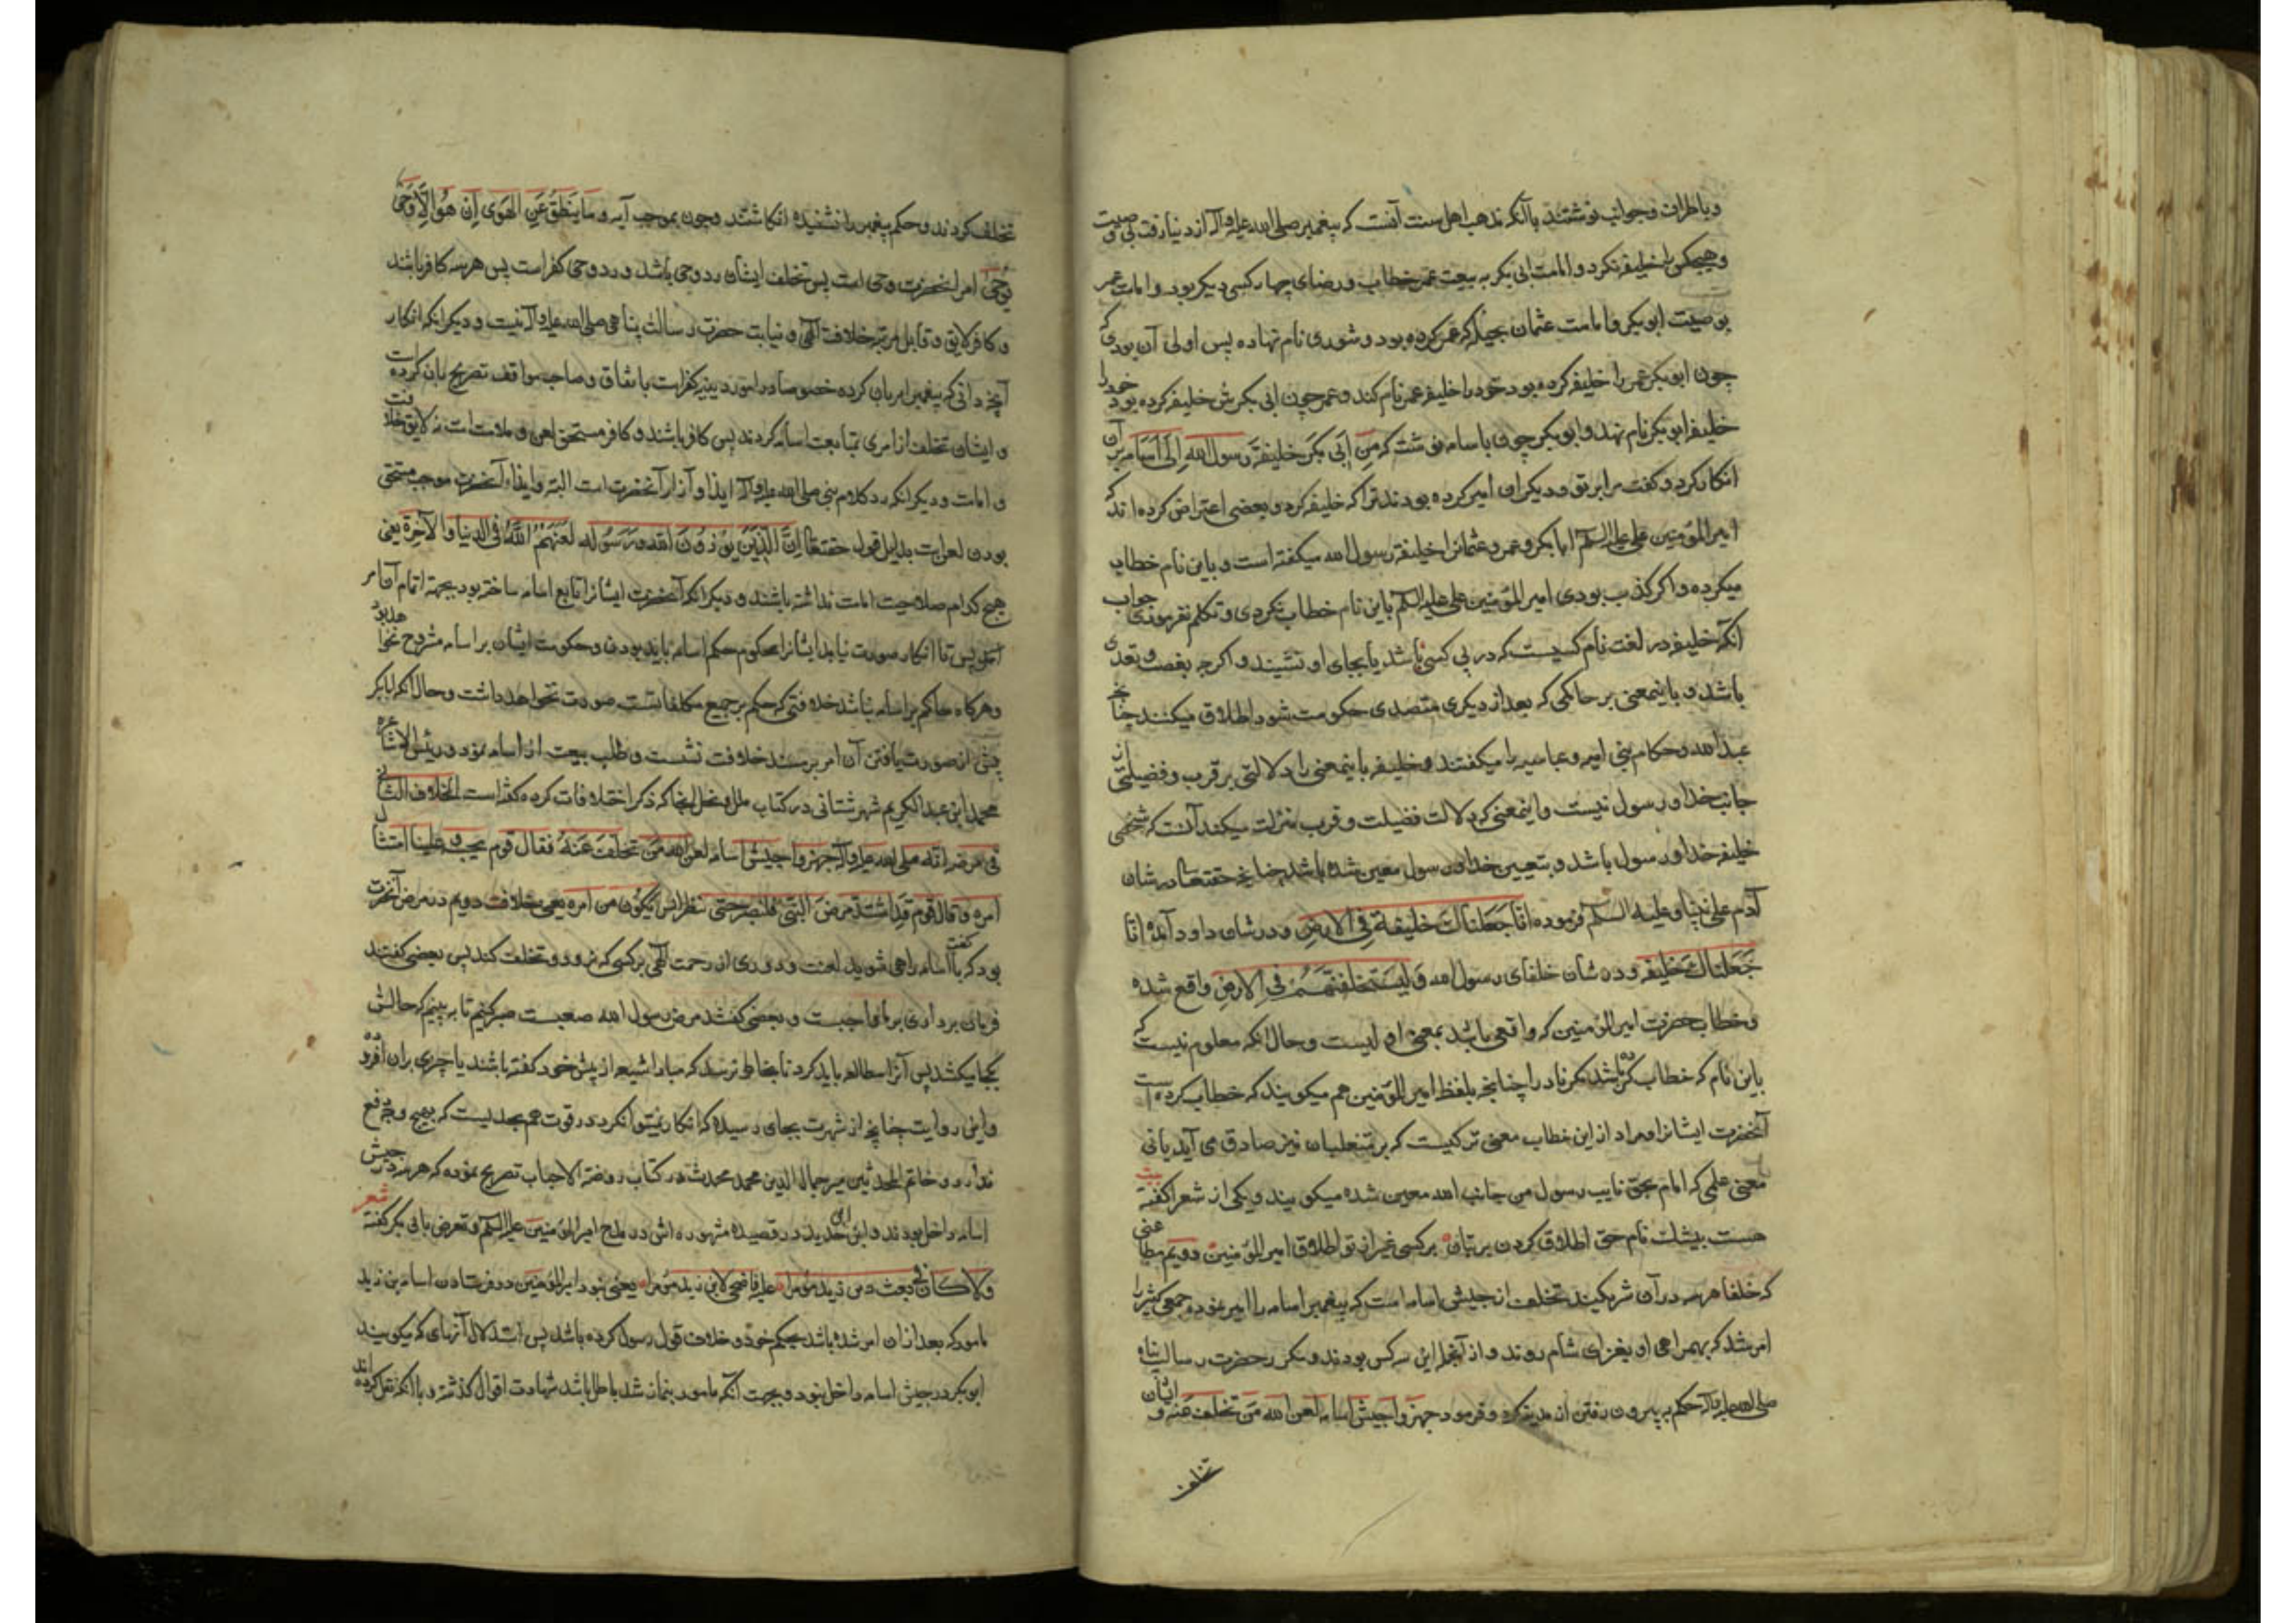 و باطراف و جوانب نوشتند با آنکه مذهب اهل سنت آنست که پیغمبر صلی الله علیه وآله از دنیا رفت بی وصیت
و هیچکس را خلیفه نکرد و امامت ابی بکر به بیعت عمر خطاب و رضای چهار کس دیگر بود و امامت عمر
بوصیت ابو بکر و امامت عثمان بحیله که عمر کرده بود و شوری نام نهاده پس اولی آن بودی که
چون ابو بکر عمر را خلیفه کرده بود خود را خلیفه عمر نام کند و عمر چون ابی بکرش خلیفه کرده بود خود را
خلیفه ابو بکر نام نهد و ابو بکر چون باسامه نوشت که من ابی بکر خلیفة رسول الله الی اسامه بر آن
انکار کرد و گفت مرا بر تو و دیگران امیر کرده بودند ترا که خلیفه کرد و بعضی اعتراض کرده اند که
امیر المؤمنین علی علیه السلم ابا بکر و عمر و عثمانرا خلیفة رسول الله میگفته است و باین نام خطاب
میکرده و اگر کذب بودی امیر المؤمنین علی علیه السلم باین نام خطاب نکردی و تکلم نفرمودی جواب
آنکه خلیفه در لغت نام کسیست که در پی کسی باشد یا بجای او نشیند و اگرچه بغصب و تعدی
باشد و باینمعنی بر حاکمی که بعد از دیگری متصدی حکومت شود اطلاق میکنند چنانچه
عبد الله و حکام بنی امیه و عباسیه را میگفتند و خلیفه باینمعنی را دلالتی بر قرب و فضیلتی از
جانب خدا و رسول نیست و اینمعنی که دلالت فضیلت و قرب منزلت میکند آنست که شخصی
خلیفه خدا و رسول باشد و بتعیین خدا و رسول معین شده باشد چنانچه حقتعالی در شان
آدم علی نبینا و علیه السلم فرموده انا جعلناك خلیفة فی الارض و در شان داود آمده انا
جعلناك خلیفه و در شان خلفای رسول الله و لیستخلفنهم فی الارض واقع شده
و خطاب حضرت امیر المؤمنین که واقعی باشد بمعنی اولیست و حال آنکه معلوم نیست که
باین نام که خطاب کرده باشد مکر نادرا چنانچه بلفظ امیر المؤمنین هم میگویند که خطاب کرده است
آنحضرت ایشانرا و مراد از این خطاب معنی ترکیبیست که بر متغلبان نیز صادق می آید یانی
معنی علمی که امام بحق نایب رسول من جانب الله معین شده میگویند و یکی از شعرا گفته بیت
هست بیشك نام حق اطلاق کردن بر بتان برکسی غیر از تو اطلاق امیر المؤمنین دویم مطاعنی
که خلفا هر سه در آن شریکیند تخلف از جیش اسامه است که پیغمبر اسامه را امیر نموده جمعی کثیر را
امر شد که بهمراهی او بغزای شام روند و از آنجمله این سه کس بودند و مکرر حضرت رسالت پناه
صلی الله علیه وآله حکم به بیرون رفتن از مدینه کرد و فرمود جهزوا جیش اسامه لعن الله من تخلف عنه و ایشان
تخلف
تخلف کردند و حکم پیغمبر را نشنیده انگاشتند و چون بموجب آیه و ما ینطق عن الهوی ان هو الا وحی
یوحی امر آنحضرت وحی است پس تخلف ایشان رد وحی باشد و رد وحی کفر است پس هر سه کافر باشند
و کافر لایق و قابل مرتبه خلافت الهی و نیابت حضرت رسالت پناهی صلی الله علیه وآله نیست و دیگر آنکه انکار
آنچه دانی که پیغمبر امر بآن کرده خصوصا در امور دینیه کفر است باتفاق و صاحب مواقف تصریح بآن کرده است
و ایشان تخلف از امری بمتابعت اسامه کردند پس کافر باشند و کافر مستحق لعن و ملامت است نه لایق خلافت
و امامت و دیگر آنکه رد کلام نبی صلی الله علیه وآله ایذا و آزار آنحضرت است البته و ایذاء آنحضرت موجب مستحق
بودن لعن است بدلیل قول حقتعالی ان الذین یؤذون الله و رسوله لعنهم الله فی الدنیا والآخرة یعنی
هیچ کدام صلاحیت امامت نداشته باشند و دیگر آنکه آنحضرت ایشانرا تابع اسامه ساخته بود بجهة اتمام
پس تا انکار صورت نیابد ایشانرا محکوم حکم اسامه باید بودن و حکومت ایشان بر اسامه مشروع نخواهد بود
و هرگاه حاکم بر اسامه نباشد خلافتی که حکم بر جمیع مکلفانست صورت نخواهد داشت و حال آنکه ابا بکر
پیش از صورت یافتن آن امر بر مسند خلافت نشست و طلب بیعت از اسامه نمود و رئیس الاشاعره
محمد ابن عبد الکریم شهرستانی در کتاب ملل و نحل آنجا که ذکر اختلافات کرده گفته است الخلاف الثانی
فی مرضه انه صلی الله علیه وآله جهزوا جیش اسامه لعن الله من تخلف عنه فقال قوم یجب علینا امتثال
امره و قال قوم قد اشتد مرض النبی فلنصبر حتی ننظر ایش یکون من امره یعنی خلاف دویم در مرض آنحضرت
بود که گفت با اسامه راهی شوید لعنت و دوری از رحمت الهی بر کسی که نرود و تخلف کند پس بعضی گفتند
فرمان برداری بر ما واجبست و بعضی گفتند مرض رسول الله صعبست صبر کنیم تا به بینیم که حالش
بکجا میکشد پس آنرا مطالعه باید کرد تا بخاطر نرسد که مبادا شیعه از پیش خود گفته باشند یا چیزی بران افزوده
و این روایت چنانچه از شهرت بجای رسیده که انکار نمیتوان کرد در قوت هم بحدیست که بهیچ وجه دفع
ندارد و خاتم المحدثین میر جمال الدین محمد محدث در کتاب روضة الاحباب تصریح نموده که هر سه در جیش
اسامه داخل بودند و ابن ابی الحدید در قصیده مشهوره اش در مدح امیر المؤمنین علیه السلم و تعرض بابی بکر گفته شعر
ولا کان فی بعث بن زید مؤمرا علیه فاضحی لابن زید مؤمرا یعنی نبود امیر المؤمنین در فرستادن اسامه بن زید
مامور که بعد از ان امر شده باشد بحکم خود و خلاف قول رسول کرده باشد پس استدلال آنهای که میگویند
ابو بکر در جیش اسامه داخل نبود و بجهت آنکه مامور بنماز شد باطل باشد بشهادت اقوال گذشته و با آنکه نقل کرده اند